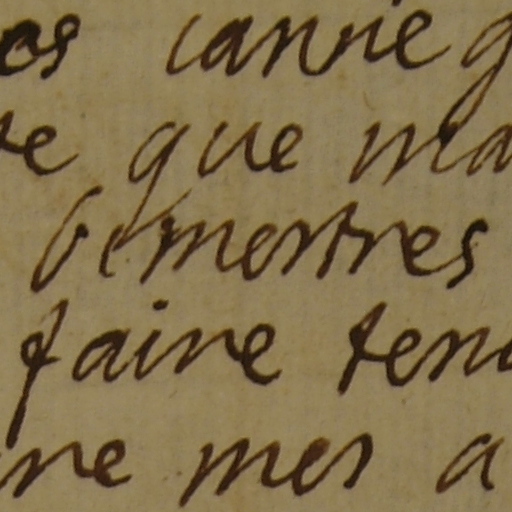 os carrie g
te que ma
bemostres
faire tend
ne mes a